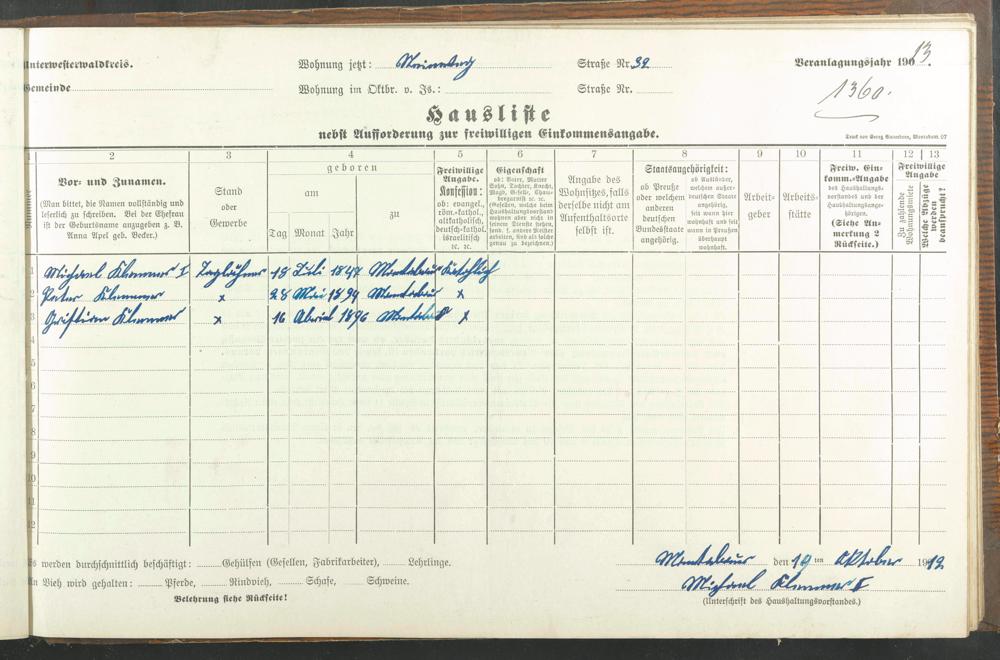 Unterwesterwaldkreis.
Wohnung jetzt: Straße Nr. 39
Veranlagungsjahr 1913.
Gemeinde
Wohnung im Oktbr. v. Js.: Straße Nr.
1360.
Hausliste
nebst Aufforderung zur freiwilligen Einkommensangabe.
Druck von Georg Sauerborn, Montabaur. 07
1 2 3 4 5 6 7 8 9 10 11 12 13
Vor- und Zunamen.
(Man bittet, die Namen vollständig und
leserlich zu schreiben. Bei der Ehefrau
ist der Geburtsname anzugeben z. B.
Anna Apel geb. Becker.)
Stand
oder
Gewerbe
geboren
am
Tag Monat Jahr
zu
Freiwillige
Angabe.
Konfession:
ob: evangel.,
röm.-kathol.,
altkatholisch,
deutsch-kathol.
israelitisch
ec. ec.
Eigenschaft
ob: Vater, Mutter
Sohn, Tochter, Knecht,
Magd, Geselle, Cham-
bergarnist ec. ec.
(Gesellen, welche beim
Haushaltungsvorstand
wohnen aber nicht in
seinem Dienste stehen,
sind f. andere Meister
arbeiten, sind als solche
genau zu bezeichnen.)
Angabe des
Wohnsitzes, falls
derselbe nicht am
Aufenthaltsorte
selbst ist.
Staatsangehörigkeit:
ob Preuße
oder welchem
anderen
deutschen
Bundesstaate
angehörig.
ob Ausländer,
welchem außer-
deutschen Staate
angehörig,
seit wann hier
wohnhaft und seit
wann in Preußen
überhaupt
wohnhaft.
Arbeit-
geber
Arbeits-
stätte
Freiw. Ein-
komm.-Angabe
des Haushaltungs-
vorstandes und der
Haushaltungsange-
hörigen.
(Siehe An-
merkung 2
Rückseite.)
Freiwillige
Angabe
Zu zahlende
Wohnungsmiete
Welche Abzüge
werden
beansprucht?
1 Michael Klemmer I Taglöhner 18 Juli 1847 Montabaur Katholisch
2 Peter Klemmer x 28 Mai 1894 Montabaur x
3 Christian Klemmer x 16 April 1896 Montabaur x
4
5
6
7
8
9
10
11
12
Es werden durchschnittlich beschäftigt: Gehülfen (Gesellen, Fabrikarbeiter), Lehrlinge.
An Vieh wird gehalten: Pferde, Rindvieh, Schafe, Schweine.
Belehrung siehe Rückseite!
Montabaur den 19 ten Oktober 1912
Michael Klemmer I
(Unterschrift des Haushaltungsvorstandes.)